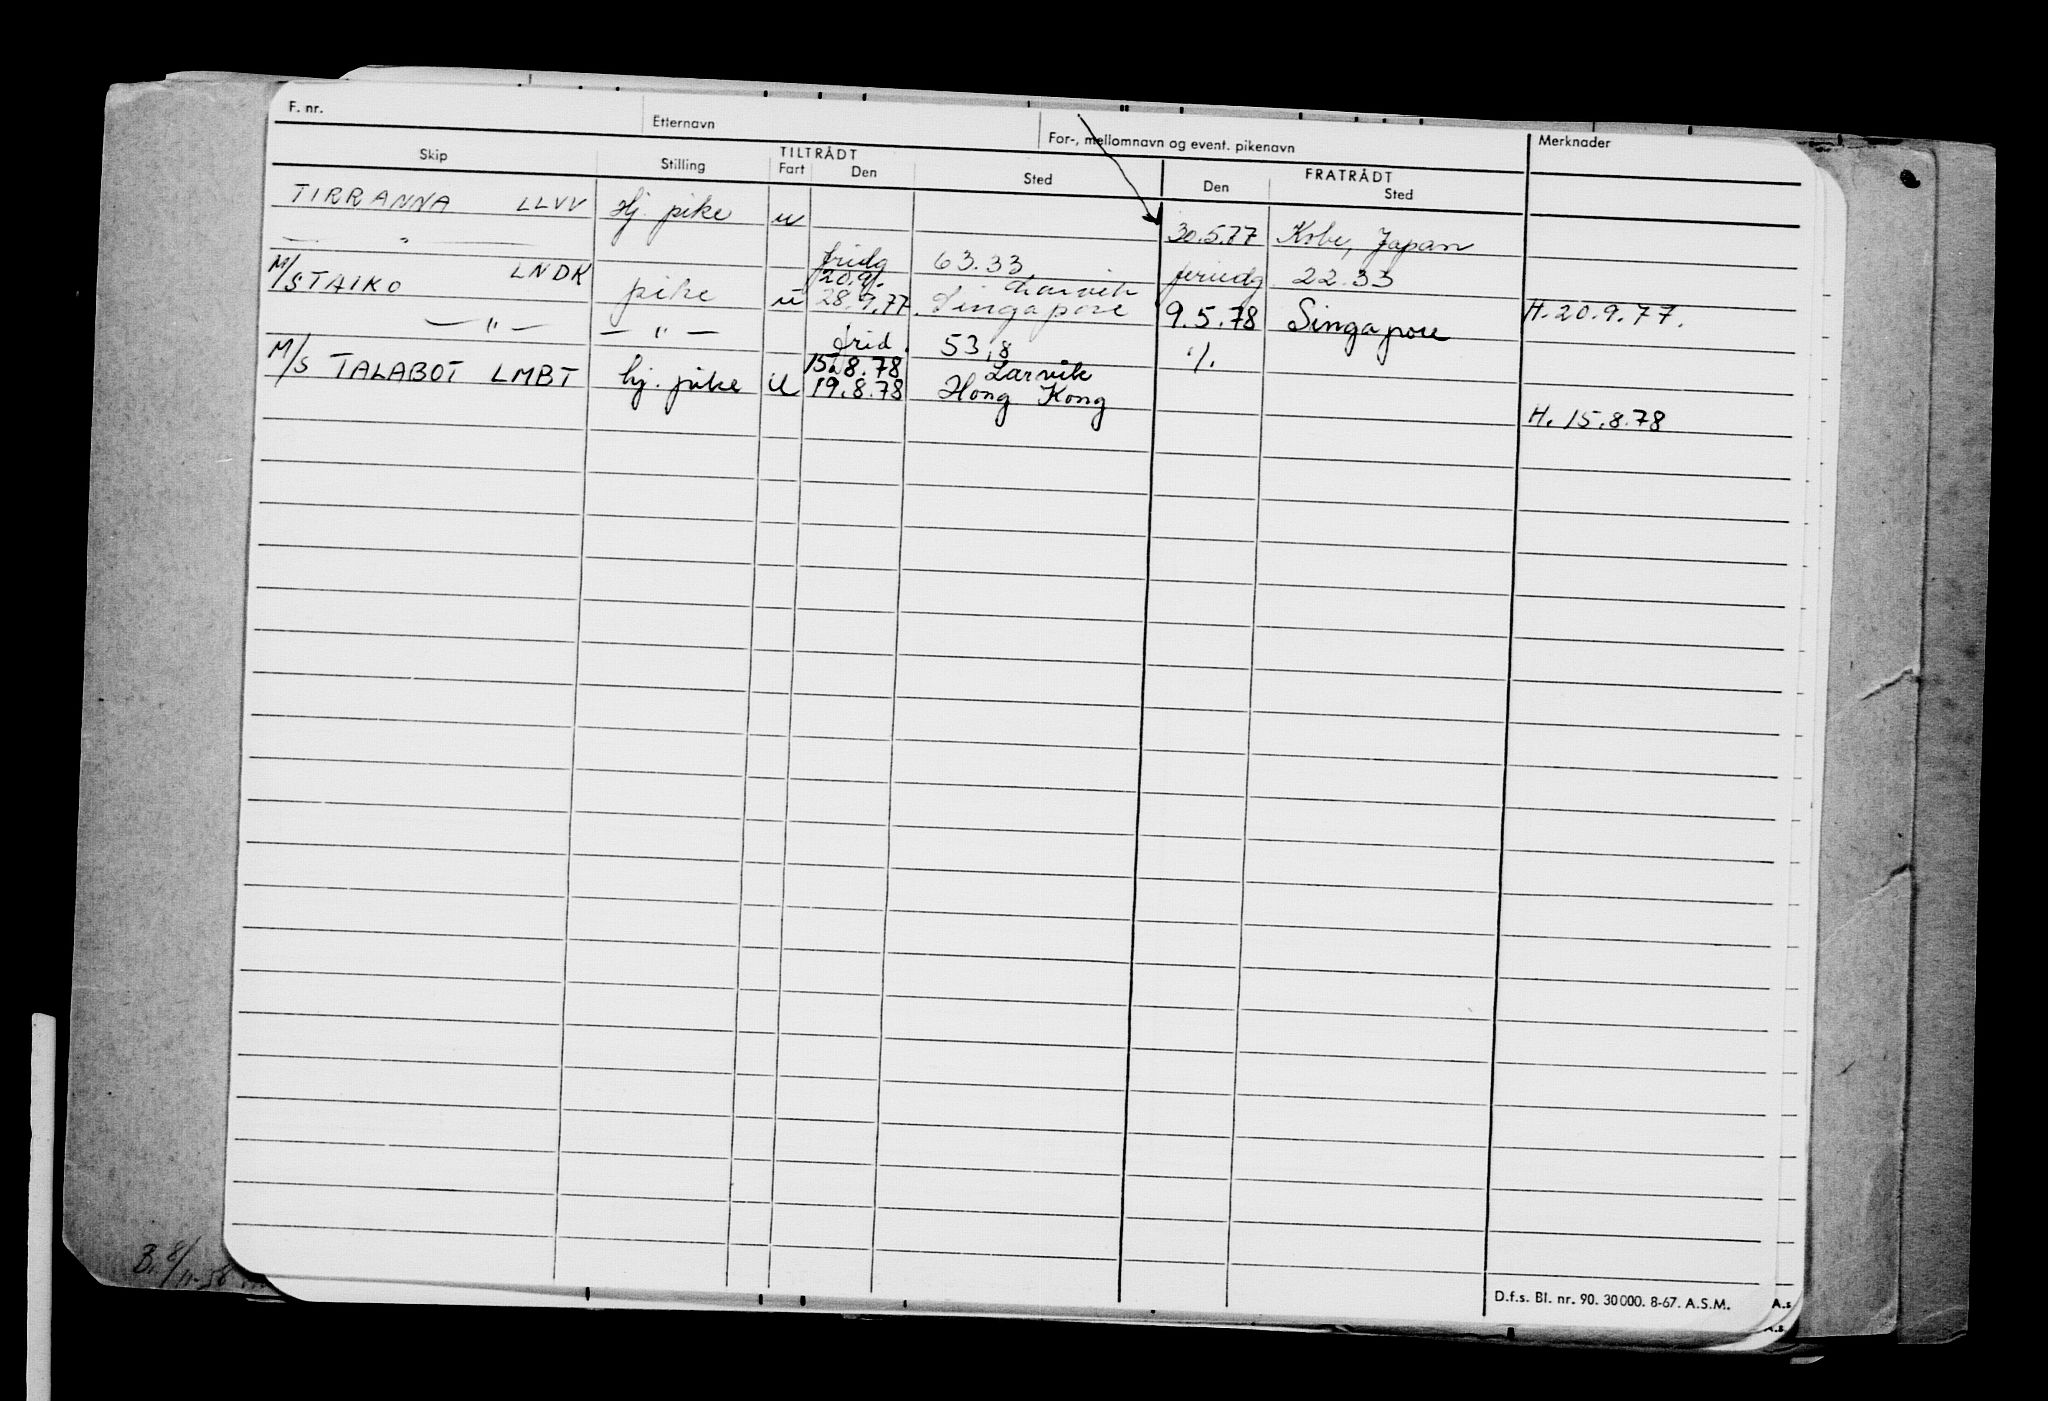 F. nr. Etternavn For-, mellomnavn og event. pikenavn Merknader
TILTRÅDT FRATRÅDT
Skip Stilling Fart Den Sted Den Sted
TIRRANNA LLVV Hj. pike u 30.5.77 Kobe, Japan
— " — fridg 63.33 feriedg. 22.33
M/S TAIKO LNDK pike u 20.9. Larvik
28.9.77. Singapore 9.5.78 Singapore H. 20.9.77.
— " — — " — frid. 53,8 ./.
M/S TALABOT LMBT hj. pike u 15.8.78 Larvik
19.8.78 Hong Kong H. 15.8.78
B. 8/11-56
D.f.s. Bl. nr. 90. 30000. 8-67. A.S.M.
A.s
A.s